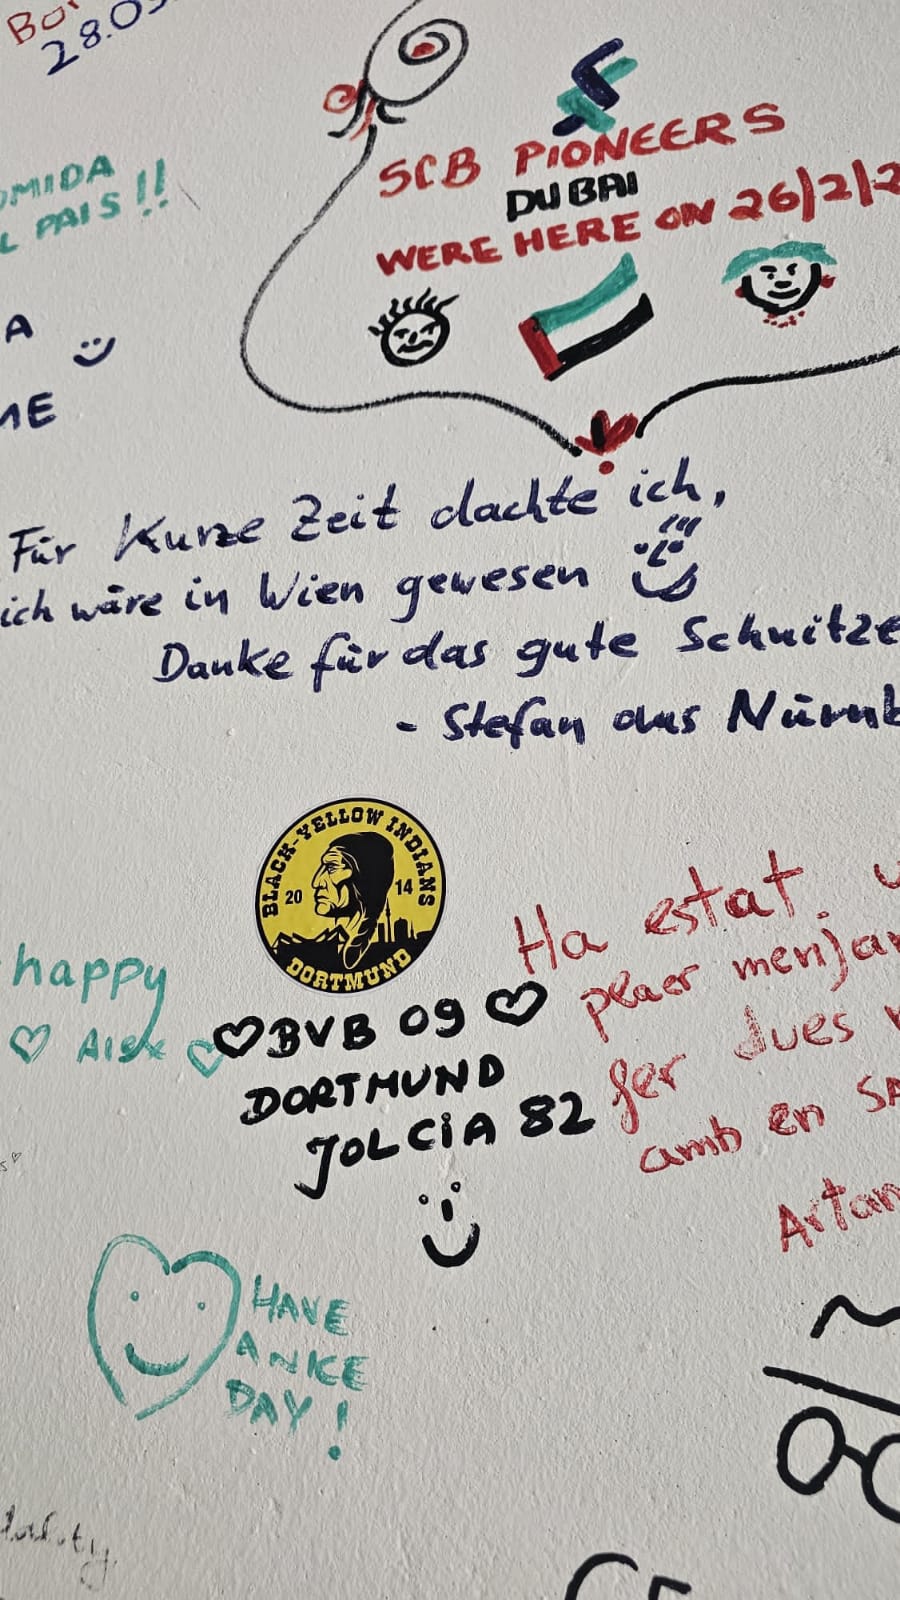 28.03
SCB PIONEERS
DUBAI
WERE HERE ON 26/2/2
OMIDA
L PAIS!!
A
ME
Für Kurze Zeit dachte ich,
ich wäre in Wien gewesen
Danke für das gute Schnitze
- Stefan aus Nürnb
BLACK-YELLOW INDIANS
20 14
DORTMUND
happy
♡ Alex ♡
♡ BVB 09 ♡
DORTMUND
JOLCiA 82
Ha estat. u
plaer menjar
fer dues
amb en SA
Artan
HAVE
A NICE
DAY!